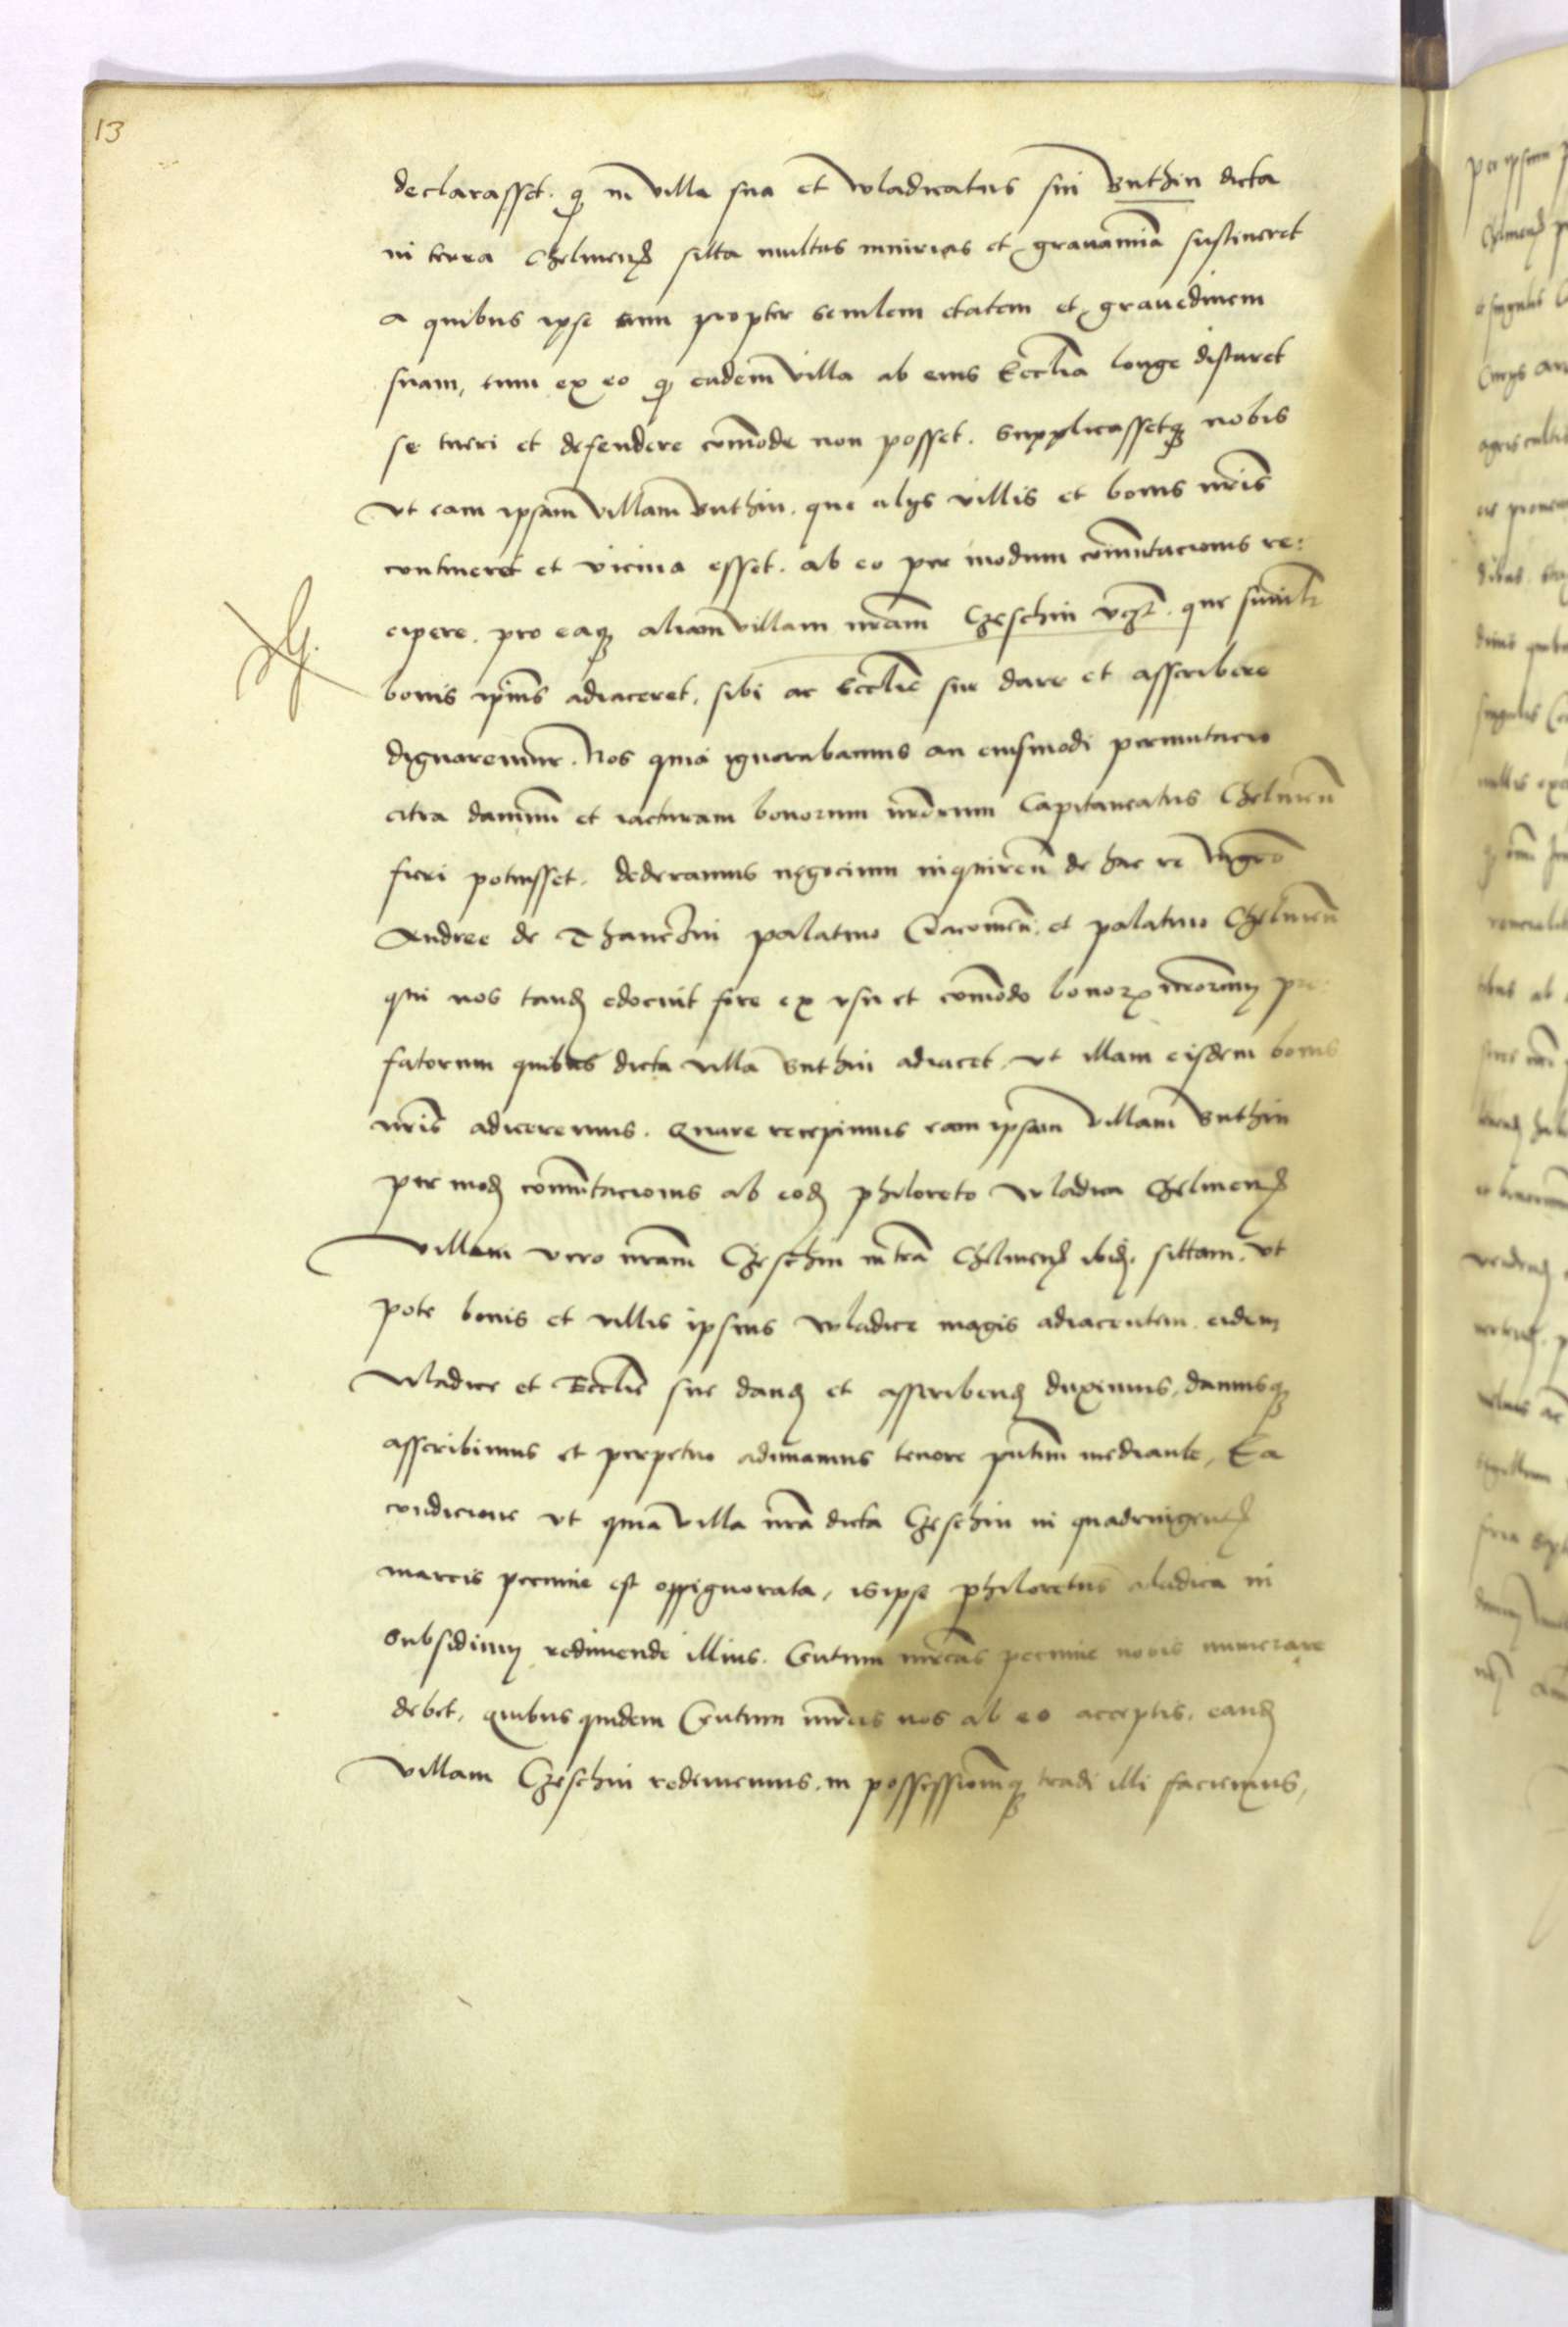 13
declarasset. q in villa sua et wladicatus sui Buthin dicta
in terra Chelmens sitta multas iniurias et gravamina sustineret
a quibus ipse cum propter senilem etatem et gravedinem
suam, tum ex eo q eadem villa ab eius Ecclia longe distaret
se tueri et defendere comode non posset. supplicassetq nobis
vt eam ipsam villam Buthin. que alys villis et bonis nris
contineret et vicina esset. ab eo per modum comutacionis re:
cipere. pro eaq aliam villam nram Czeschin que similr
bonis ipius adiaceret, sibi ac Ecclie sue dare et asscribere
dignaremur. Nos quia ignorabamus an eiusmodi permutacio
citra damnum et iacturam bonorum nrorum Capitaneatus Chelmen
fieri potuisset. dederamus negocium inquiren de hac re Mgco
Andree de Thanczin palatino Cracovien. et palatino Chelmen
qui nos tand edocuit fore ex vsu et comodo bonor nrorum pre:
fatorum quibus dicta villa Buthin adiacet, vt illam eisdem bonis
nris adiceremus. Quare recepimus eam ipsam villam Buthin
per mod comutacionis ab eod philoreto wladica Chelmens
villam vero nram Czeschin in tra Chelmens ibid. sittam. vt
pote bonis et villis ipsius wladice magis adiacentem. eidem
wladice et Ecclie sue dand et asscribend duximus, damusq
asscribimus et perpetuo adunamus tenore pntim mediante, Ea
condicione vt quia villa nra dicta Czeschin in quadringentis
marcis pecunie est oppignorata, is ipse philoretus wladica in
subsidium redimende illius. Centum mrcas pecunie nobis numerare
debet, quibus quidem Centum mrcis nos ab eo acceptis, eand
villam Czeschin redimemus. in possessionemq tradi illi faciemus,